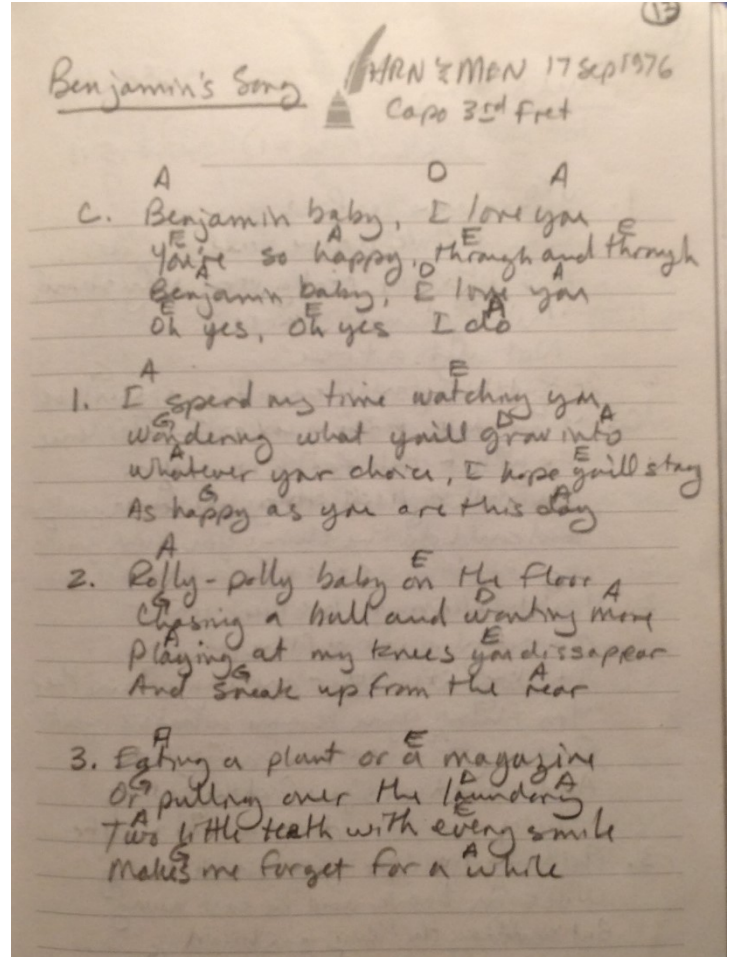 13
Benjamin's Song HRN & MEN 17 Sep 1976
Capo 3rd Fret
A D A
C. Benjamin baby, I love you
E A E E
You're so happy, through and through
A D A
Benjamin baby, I love you
E E A
Oh yes, Oh yes I do
A E
1. I spend my time watching you
G D A
Wondering what you'll grow into
A E
Whatever your choice, I hope you'll stay
G A
As happy as you are this day
A E
2. Rolly-polly baby on the floor
G D A
Chasing a ball and wanting more
A E
Playing at my knees you dissappear
G A
And sneak up from the rear
A E
3. Eating a plant or a magazine
G D A
Or pulling over the laundery
A E
Two little teeth with every smile
G A
Makes me forget for a while